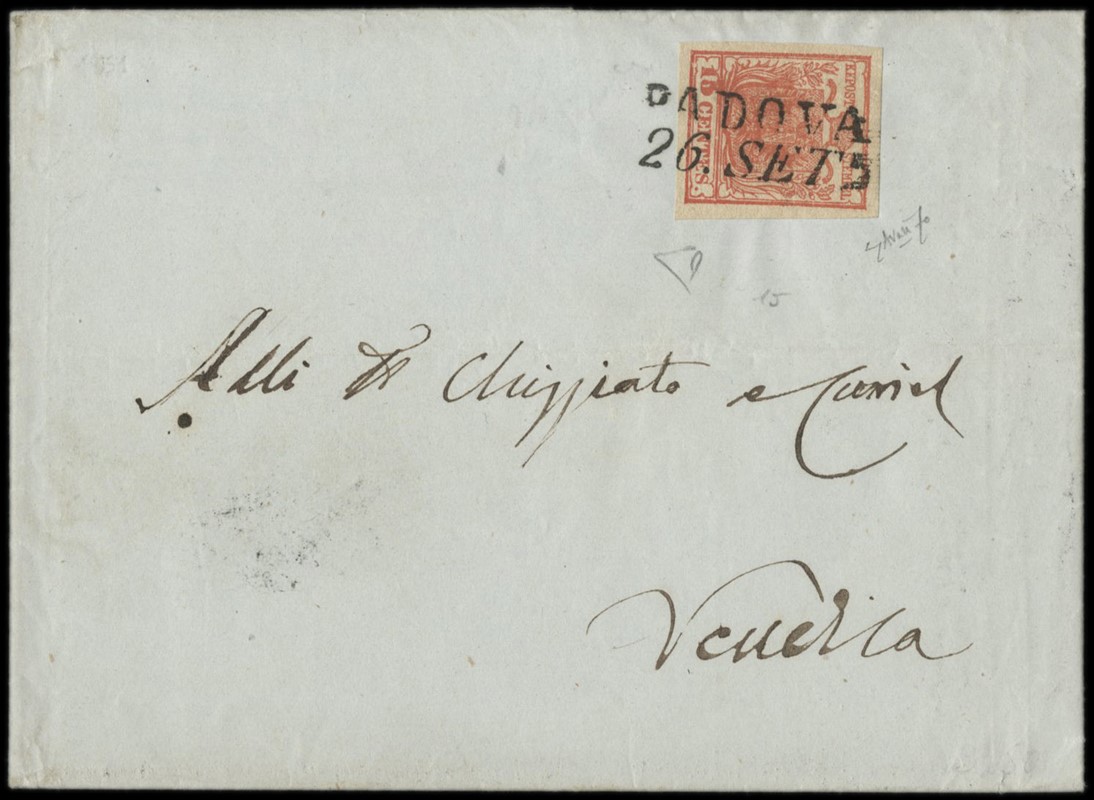 PADOVA
26. SET 5
KKPOST
15 CENTES.
15
Alli Chiggiato e Curiel
Venezia